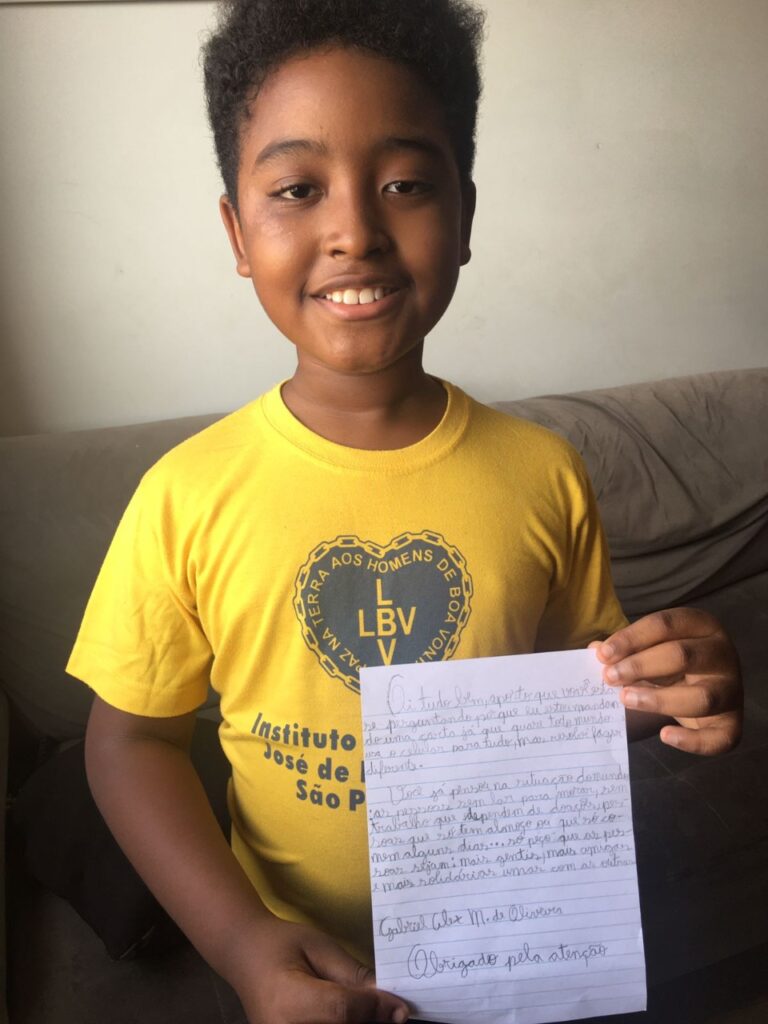 PAZ NA TERRA AOS HOMENS DE BOA VON
L
LBV
V
Instituto
José de
São P
Oi tudo bem, aposto que você esta
se perguntando porque eu estou mandan
do uma carta já que quase todo mundo u
sa o celular para tudo, mas resolvi fazer
diferente.
Você já pensou na situação do mundo
as pessoas sem lar para morar, sem
trabalho que dependem de doações, pes
soas que só tem almoço ou que só co-
mem alguns dias... só peço que as pes
soas sejam: mais gentis, mais amigas
e mais solidárias umas com as outras
Gabriel Alex M. de Oliveira
Obrigado pela atenção